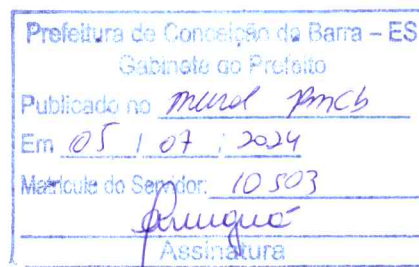 Prefeitura de Conceição da Barra – ES
Gabinete do Prefeito
Publicado no mural PMCB
Em 05 / 07 / 2024
Matricula do Servidor: 10503
Assinatura